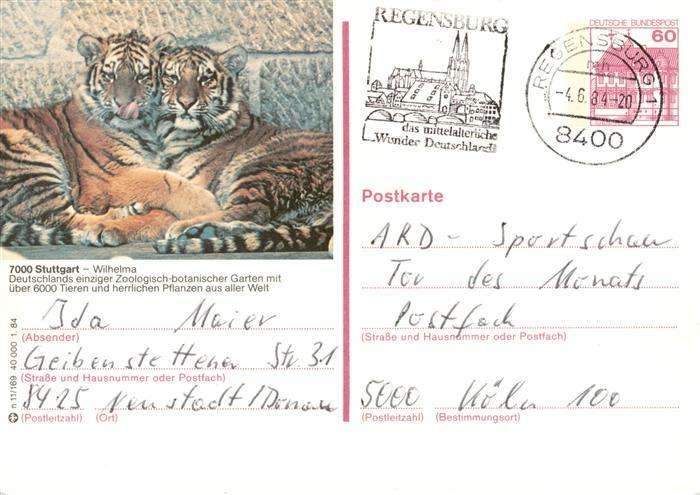 REGENSBURG
das mittelalterliche
Wunder Deutschlands
REGENSBURG 1
-4.6.84-20
8400
DEUTSCHE BUNDESPOST
60
7000 Stuttgart – Wilhelma
Deutschlands einziger Zoologisch-botanischer Garten mit
über 6000 Tieren und herrlichen Pflanzen aus aller Welt
Ida Maier
(Absender)
Geibenstettener Str. 31
(Straße und Hausnummer oder Postfach)
8425 Neustadt/Donau
(Postleitzahl) (Ort)
n 11/169 40 000 1.84
Postkarte
ARD - Sportschau
Tor des Monats
Postfach
(Straße und Hausnummer oder Postfach)
5000 Köln 100
(Postleitzahl) (Bestimmungsort)